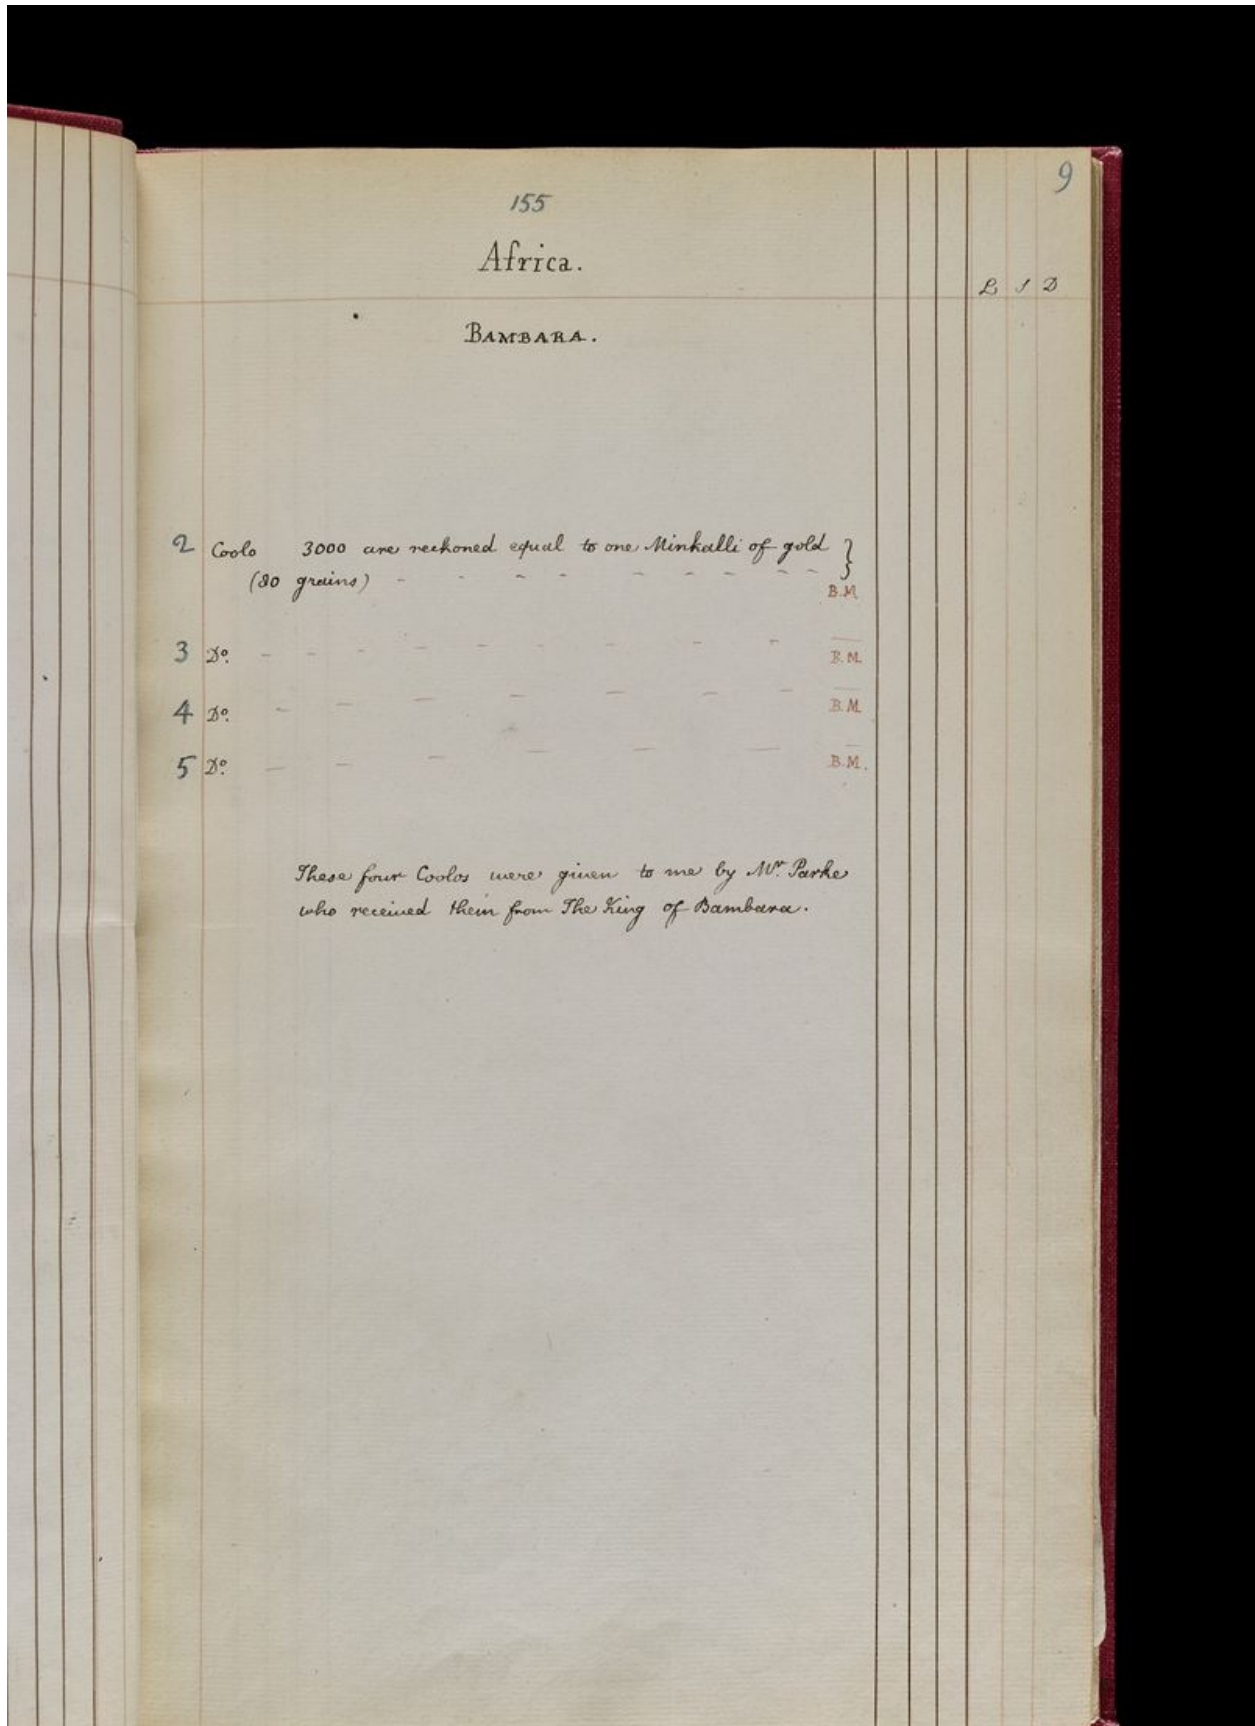 9
155
Africa.
L S D
BAMBARA.
2 Coolo 3000 are reckoned equal to one Minkalli of gold }
(80 grains) - - - - - - - - -
B.M.
3 Do. - - - - - - - - - B.M.
4 Do. - - - - - - - B.M.
5 Do. - - - - - - B.M.
These four Coolos were given to me by Mr. Parke
who received them from The King of Bambara.